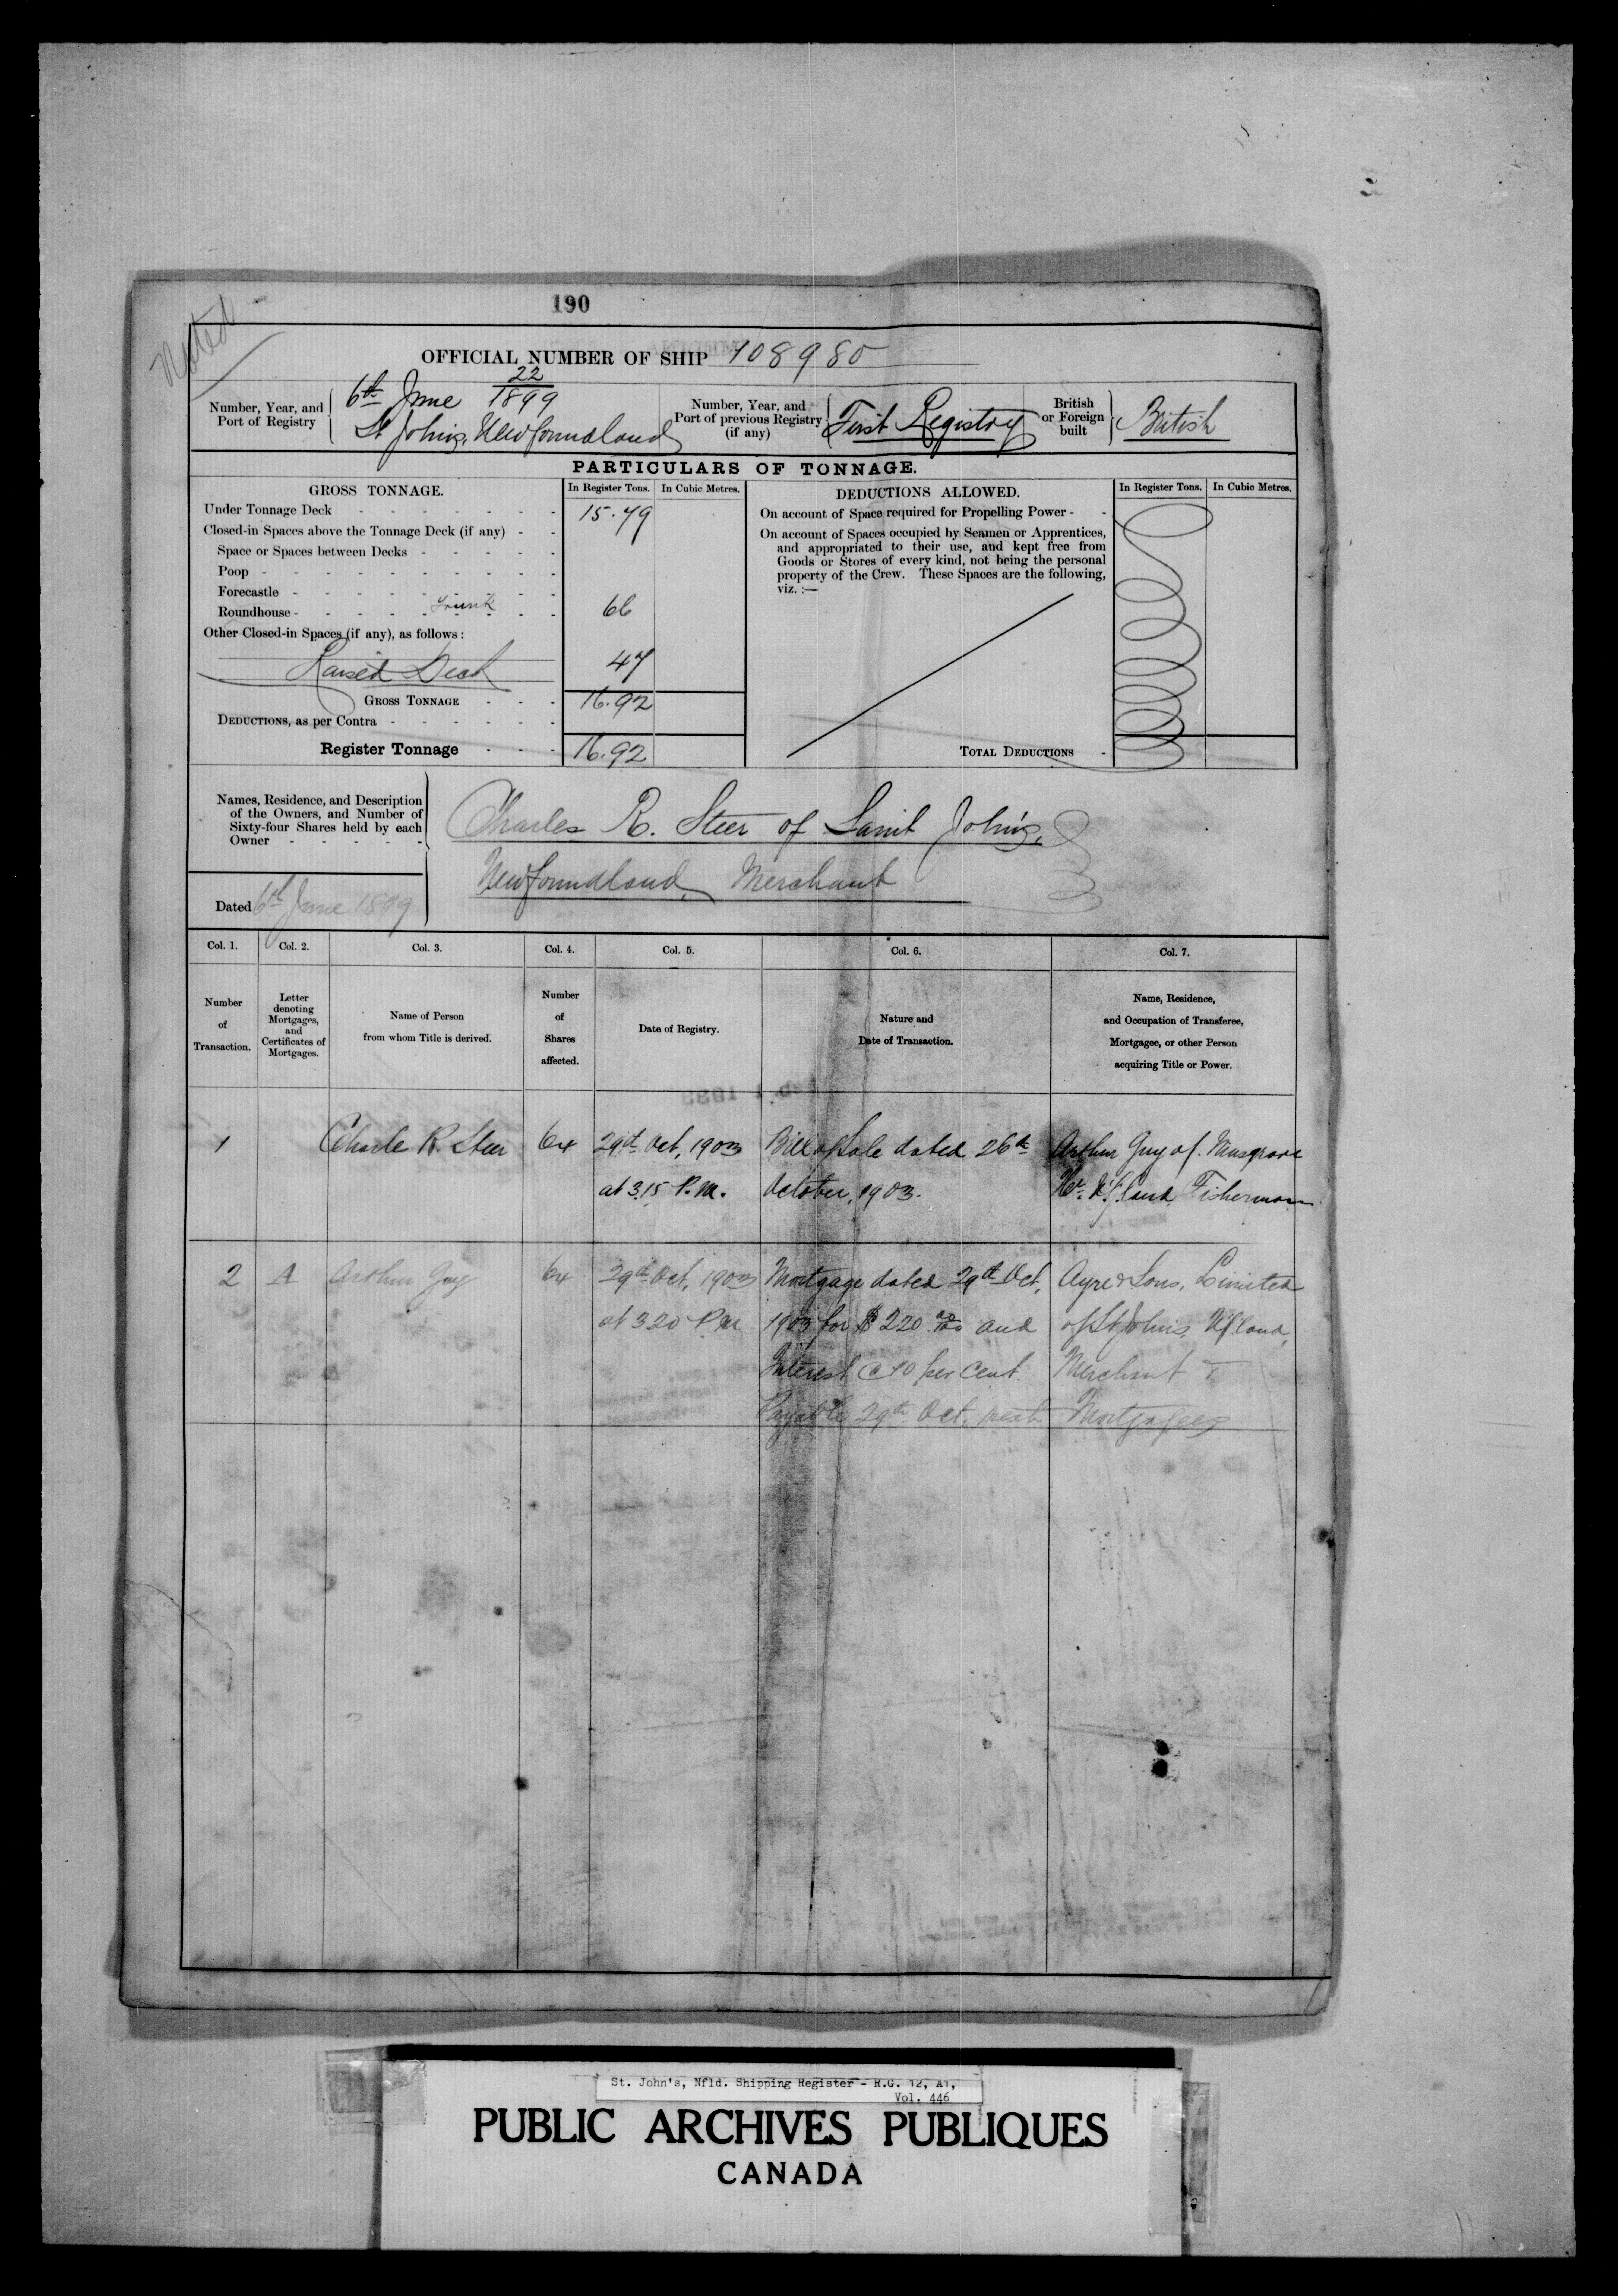 190
Noted
OFFICIAL NUMBER OF SHIP 108980
Number, Year, and Port of Registry
6th June 22/1899
St John's, Newfoundland
Number, Year, and Port of previous Registry (if any)
First Registry
British or Foreign built
British
PARTICULARS OF TONNAGE.
GROSS TONNAGE. In Register Tons. In Cubic Metres.
Under Tonnage Deck 15.79
Closed-in Spaces above the Tonnage Deck (if any)
Space or Spaces between Decks
Poop
Forecastle
Roundhouse Trunk 66
Other Closed-in Spaces (if any), as follows:
Raised Deck 47
GROSS TONNAGE 16.92
DEDUCTIONS, as per Contra
Register Tonnage 16.92
DEDUCTIONS ALLOWED. In Register Tons. In Cubic Metres.
On account of Space required for Propelling Power
On account of Spaces occupied by Seamen or Apprentices,
and appropriated to their use, and kept free from
Goods or Stores of every kind, not being the personal
property of the Crew. These Spaces are the following,
viz. :—
TOTAL DEDUCTIONS
Names, Residence, and Description
of the Owners, and Number of
Sixty-four Shares held by each
Owner
Charles R. Steer of Saint John's,
Newfoundland, Merchant
Dated 6th June 1899
Col. 1. Col. 2. Col. 3. Col. 4. Col. 5. Col. 6. Col. 7.
Number of Transaction.
Letter denoting Mortgages, and Certificates of Mortgages.
Name of Person from whom Title is derived.
Number of Shares affected.
Date of Registry.
Nature and Date of Transaction.
Name, Residence, and Occupation of Transferee, Mortgagee, or other Person acquiring Title or Power.
1 Charles R. Steer 64 29th Oct, 1903 Bill of Sale dated 26th Arthur Guy of Musgrave
at 3.15 P.M. October, 1903. Hr. N'f'land Fisherman
2 A Arthur Guy 64 29th Oct, 1903 Mortgage dated 29th Oct, Ayre & Sons, Limited
at 3.20 P.M. 1903 for $220 00/100 and of St John's, Nfland,
Interest @ 10 per Cent. Merchant
Payable 29th Oct. next Mortgagees
St. John's, Nfld. Shipping Register - R.G. 12, A1,
Vol. 446
PUBLIC ARCHIVES PUBLIQUES
CANADA